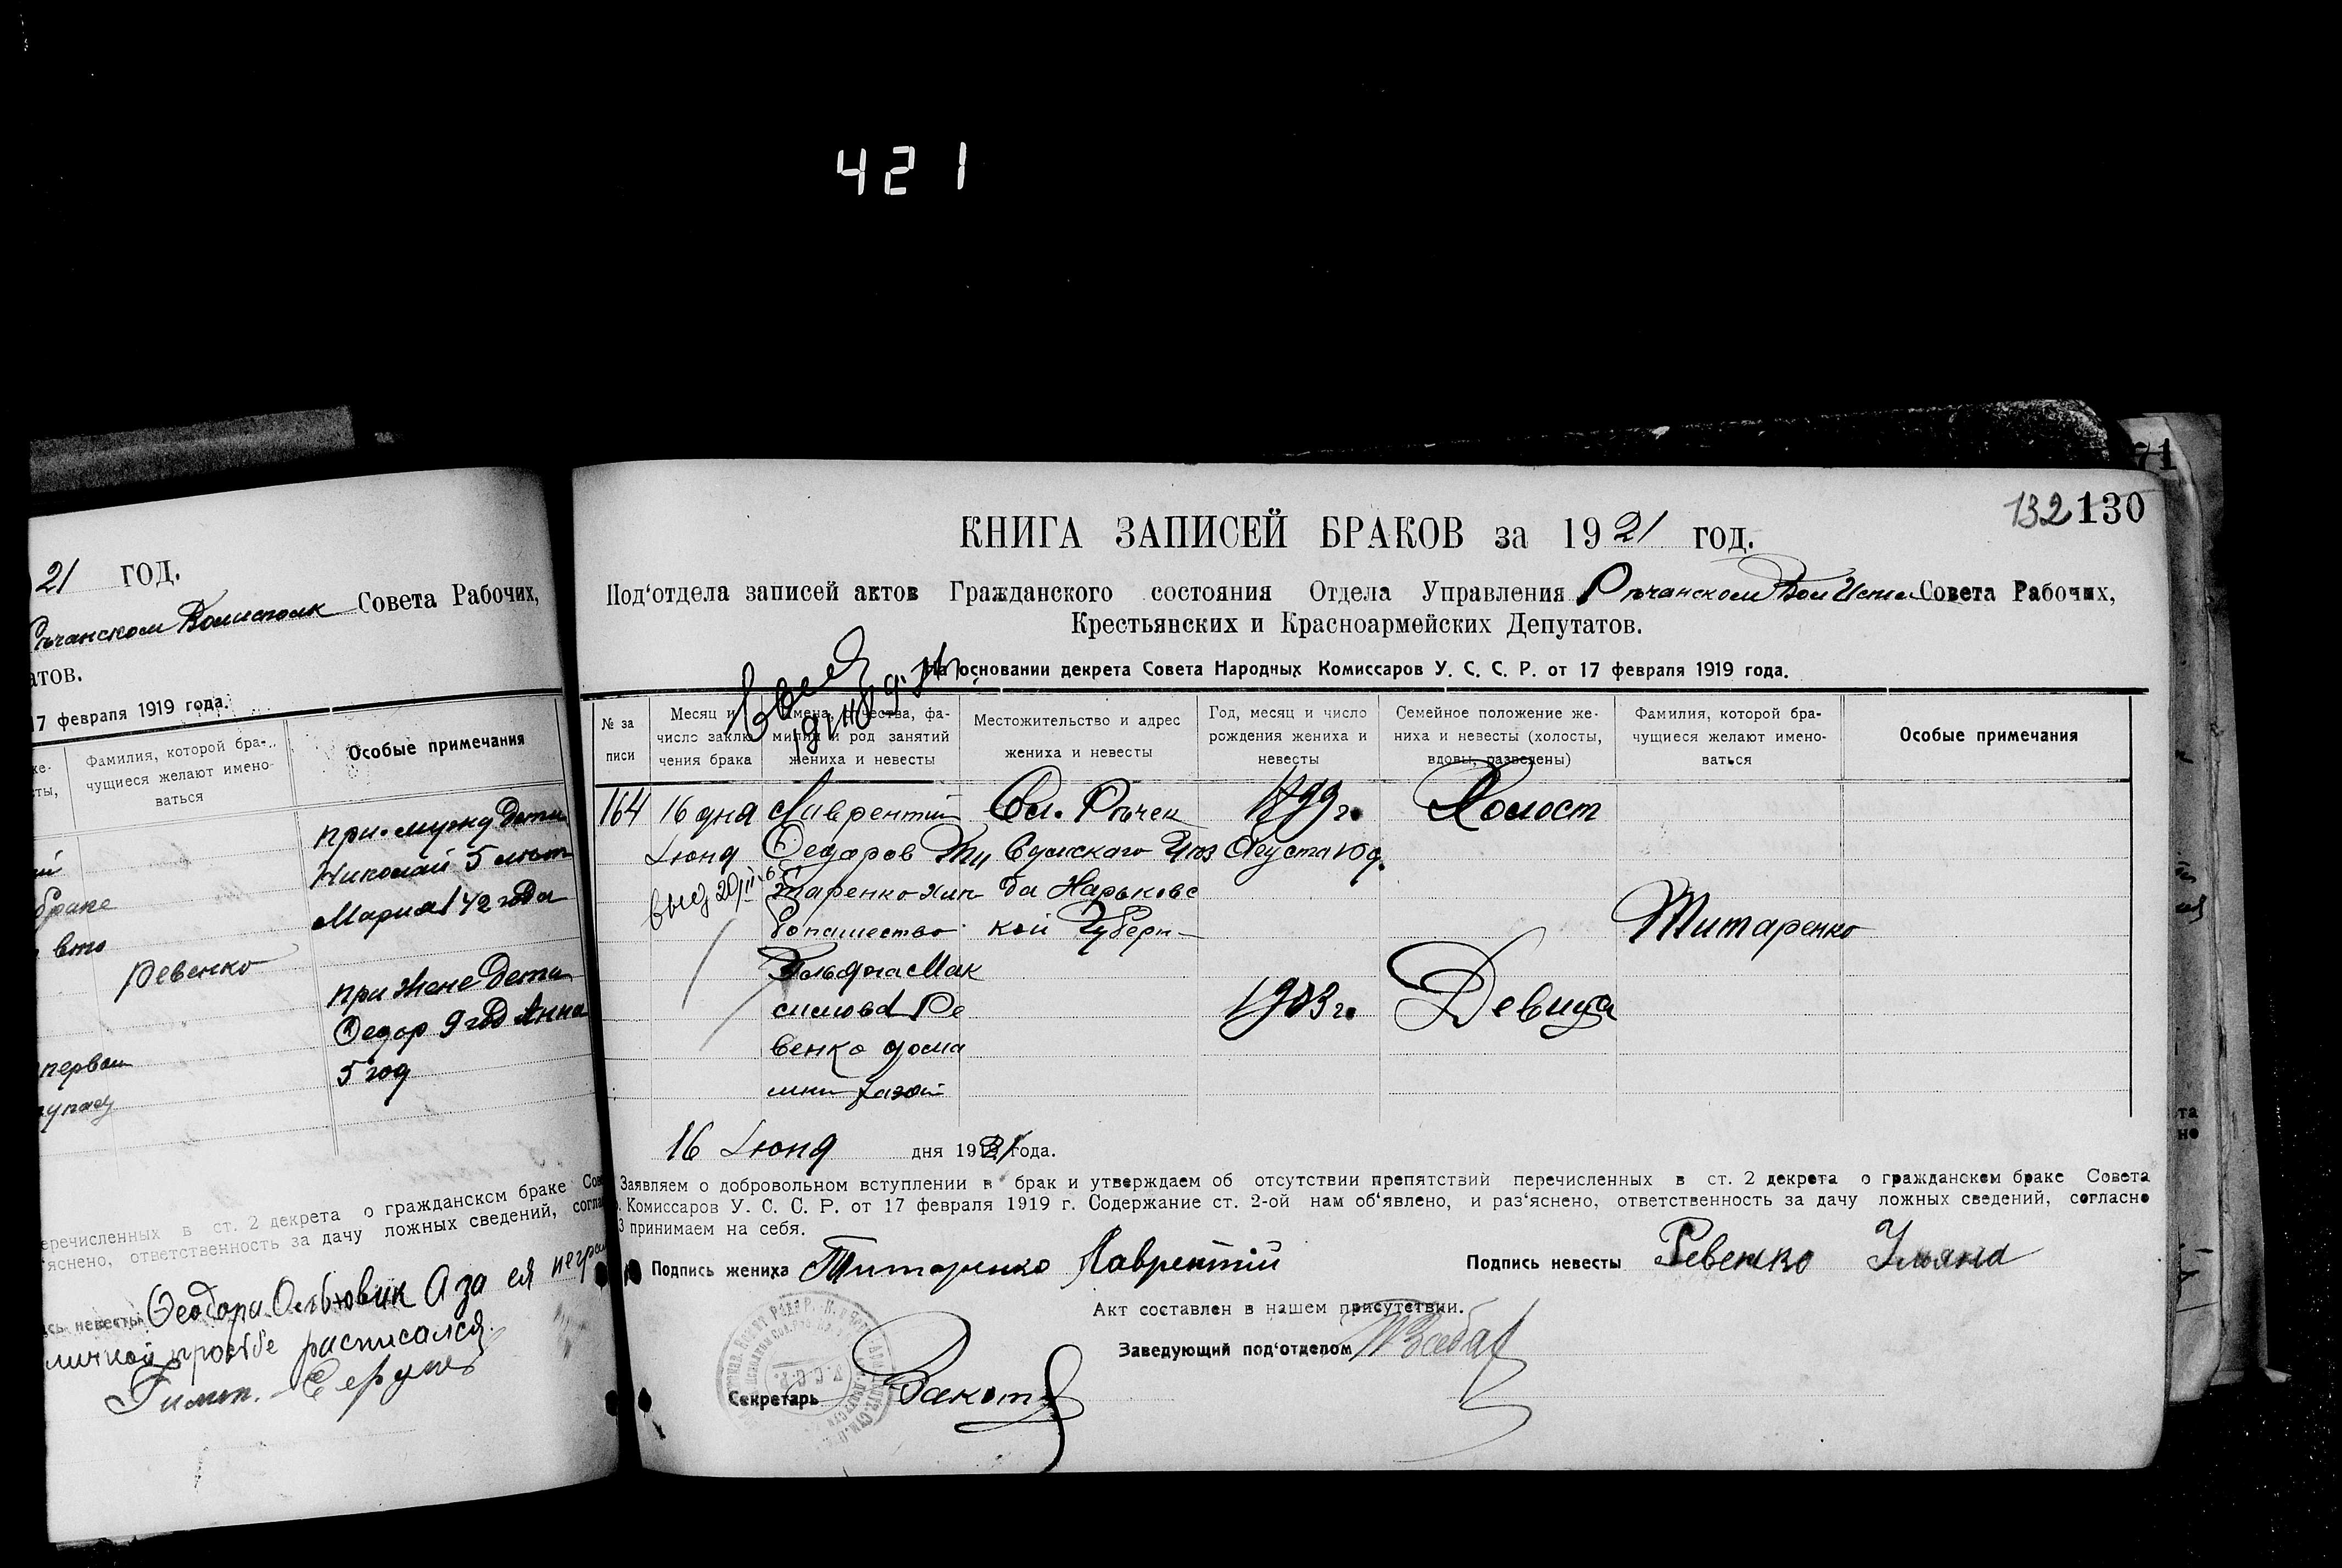 421
71
21 ГОД.
Совета Рабочих,
атов.
17 февраля 1919 года.
Фамилия, которой бра-
чущиеся желают имено-
ваться
Особые примечания
при мужу дети
Николай 5 лет
Мария 1 1/2 года
Ревенко
при жене дети
Федор 9 год Анна
5 год
первом
еречисленных в ст. 2 декрета о гражданском браке Сове
яснено, ответственность за дачу ложных сведений, соглас
сь невесты Феодора Ольховик А за ея неграм
личной просьбе расписался
132 130
КНИГА ЗАПИСЕЙ БРАКОВ за 1921 год.
Под‘отдела записей актов Гражданского состояния Отдела Управления Речанском Совета Рабочих,
Крестьянских и Красноармейских Депутатов.
На основании декрета Совета Народных Комиссаров У. С. С. Р. от 17 февраля 1919 года.
№ за
писи
Месяц и
число заклю
чения брака
Имена, отчества, фа-
милия и род занятий
жениха и невесты
Местожительство и адрес
жениха и невесты
Год, месяц и число
рождения жениха и
невесты
Семейное положение же-
ниха и невесты (холосты,
вдовы, разведены)
Фамилия, которой бра-
чущиеся желают имено-
ваться
Особые примечания
164
16 дня
Июня
Лаврентий
Федоров Ти
таренко хли
бопашество
Максимова Ре
венко дома
Сел. Речек
Сумскаго Уез
да Харьковс
кой Губерн
1899 г.
Августа 10 д.
1903 г.
Холост
Девица
Титаренко
16 Июня дня 1921 года.
Заявляем о добровольном вступлении в брак и утверждаем об отсутствии препятствий перечисленных в ст. 2 декрета о гражданском браке Совета
. Комиссаров У. С. С. Р. от 17 февраля 1919 г. Содержание ст. 2-ой нам об‘явлено, и раз‘яснено, ответственность за дачу ложных сведений, согласно
3 принимаем на себя.
Подпись жениха Титаренко Лаврентий
Подпись невесты Ревенко Ульяна
Акт составлен в нашем присутствии.
Заведующий под‘отделом
Секретарь